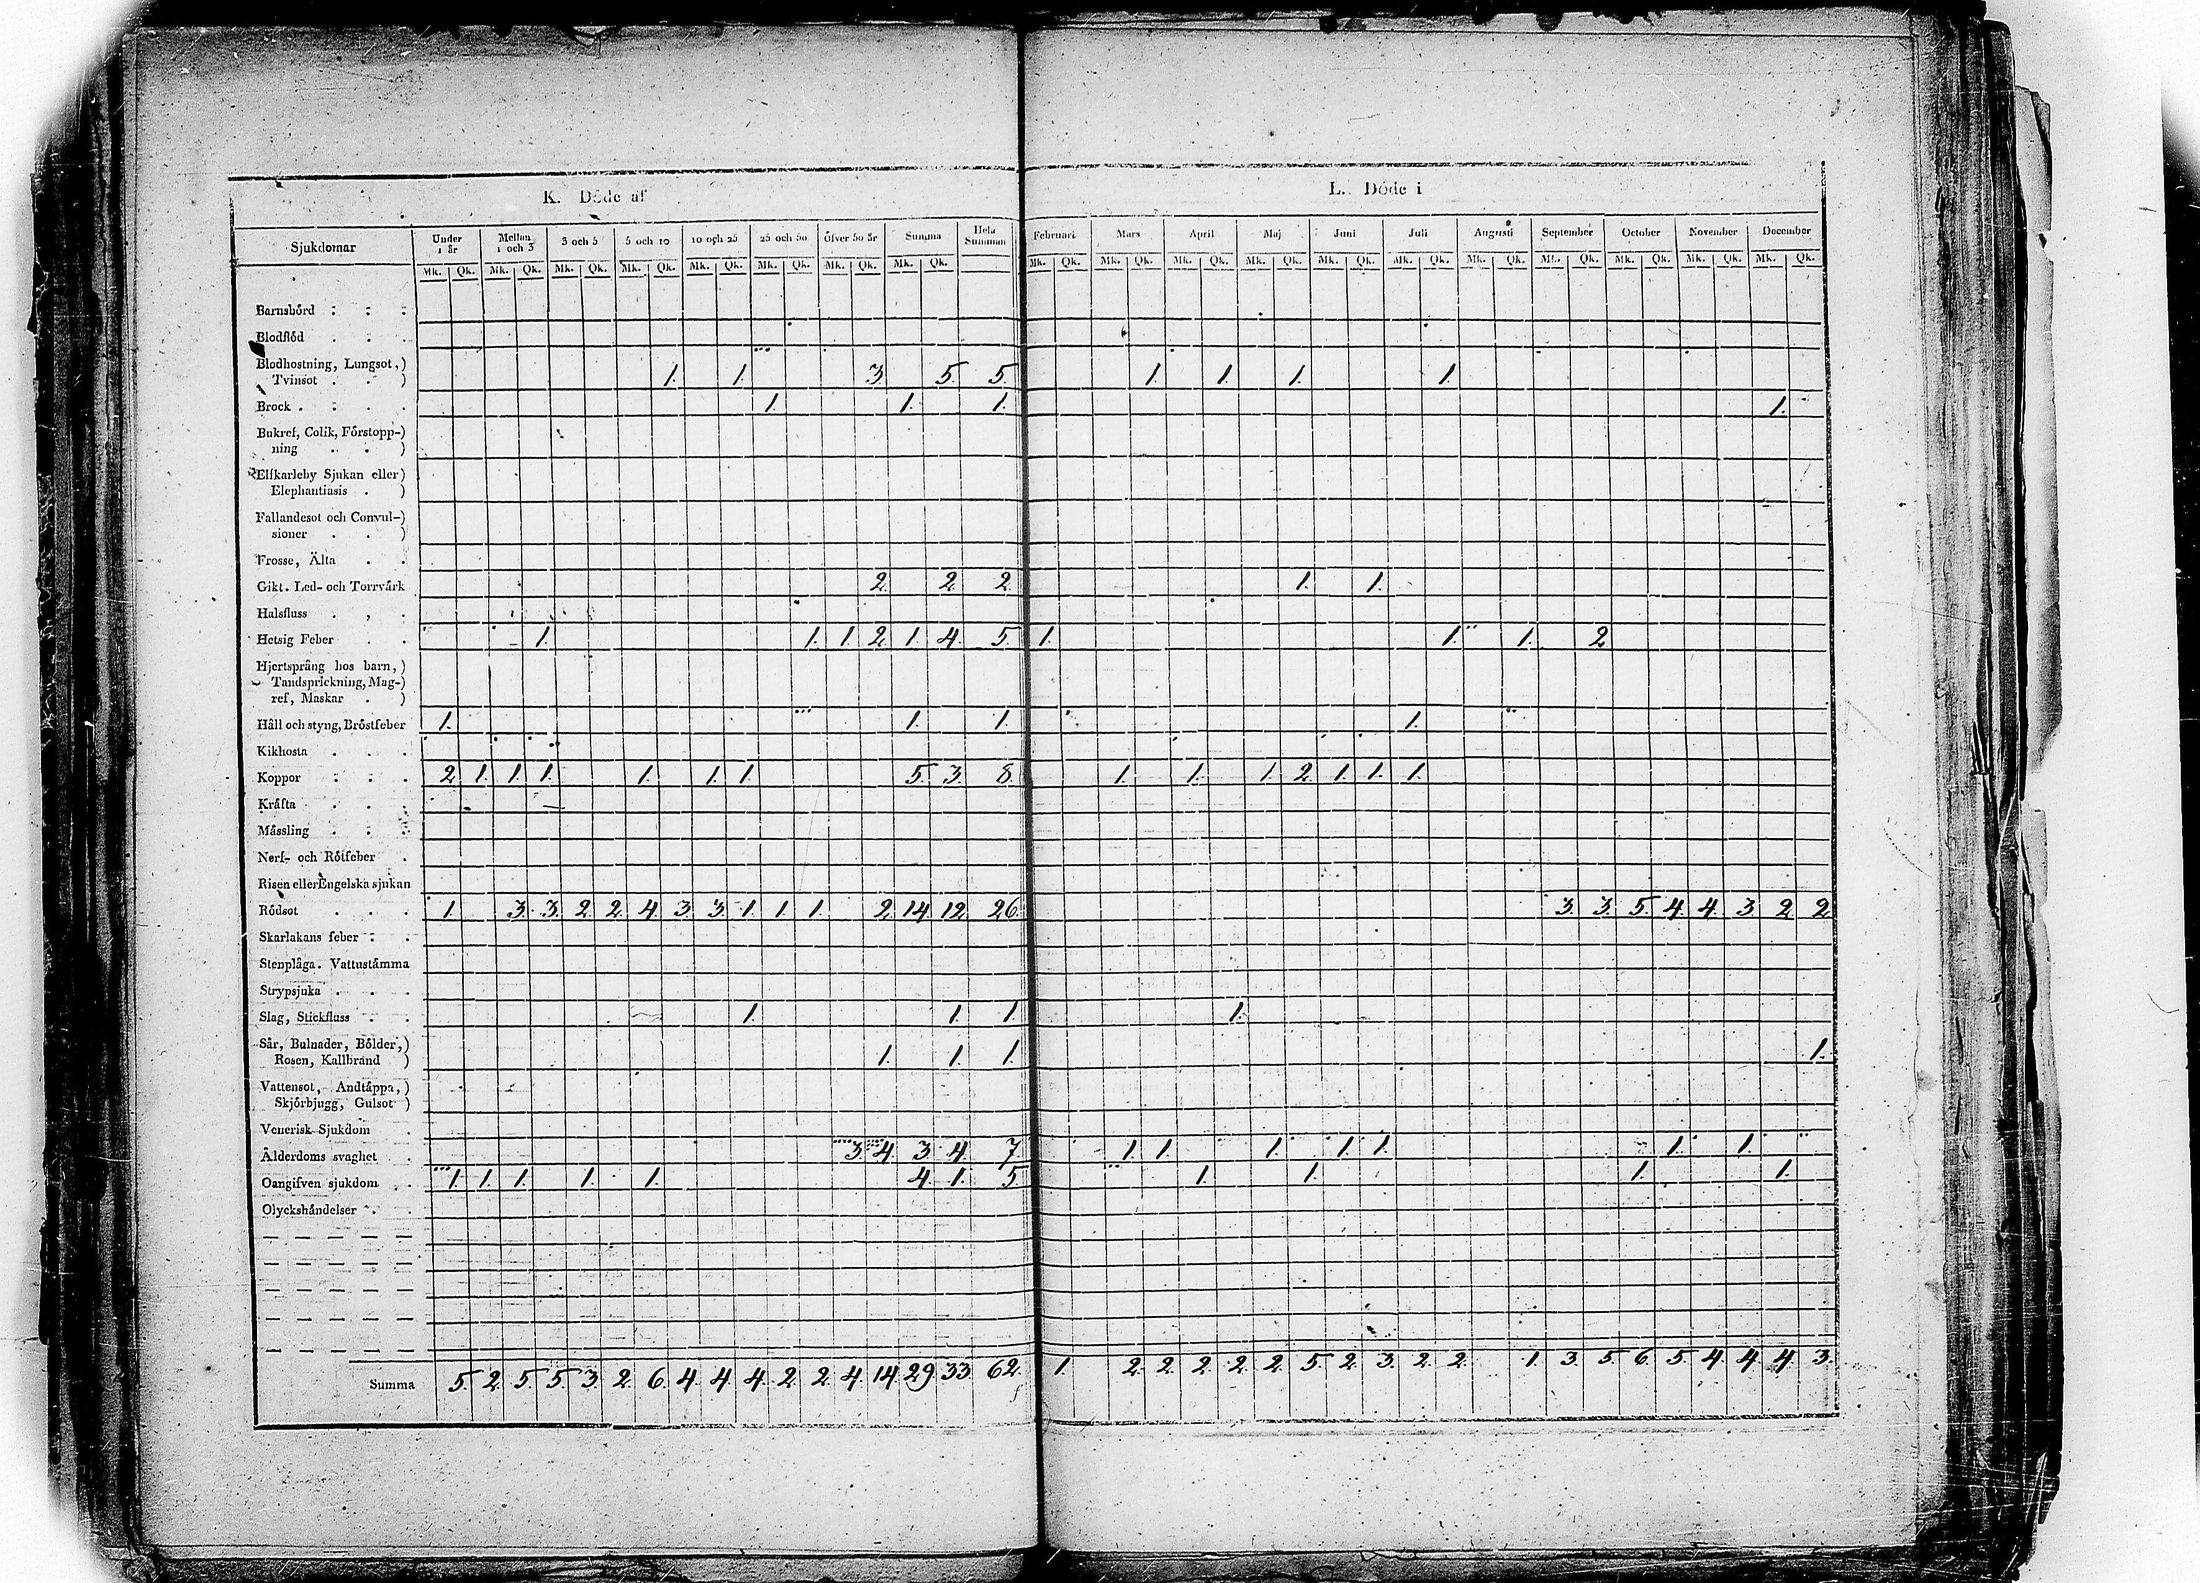 K. Döde af L. Döde i
Sjukdomar Under 1 år Mellan 1 och 3 3 och 5 5 och 10 10 och 25 25 och 50 Öfver 50 år Summa Hela Summan Februari Mars April Maj Juni Juli Augusti September October November December
Mk. Qk. Mk. Qk. Mk. Qk. Mk. Qk. Mk. Qk. Mk. Qk. Mk. Qk. Mk. Qk. Mk. Qk. Mk. Qk. Mk. Qk. Mk. Qk. Mk. Qk. Mk. Qk. Mk. Qk. Mk. Qk. Mk. Qk. Mk. Qk. Mk. Qk.
Barnsbörd
Blodflöd
Blodhostning, Lungsot,)
Tvinsot . . ) 1. 1. 3. 5. 5. 1. 1. 1. 1.
Brock . 1. 1. 1. 1.
Bukref, Colik, Förstopp-)
ning . . )
Elfkarleby Sjukan eller)
Elephantiasis . )
Fallandesot och Convul-)
sioner . . )
Frosse, Älta
Gikt. Led- och Torrvärk 2. 2. 2. 1. 1.
Halsfluss
Hetsig Feber 1. 1. 1. 2. 1. 4. 5. 1. 1. 1. 2
Hjertsprång hos barn,)
Tandsprickning, Mag-)
ref, Maskar . )
Håll och styng, Bröstfeber 1. 1. 1. 1.
Kikhosta
Koppor 2. 1. 1. 1. 1. 1. 1. 5. 3. 8. 1. 1. 1. 2. 1. 1. 1.
Kräfta
Mässling
Nerf- och Rötfeber
Risen eller Engelska sjukan
Rödsot 1. 3. 3. 2. 2. 4. 3. 3. 1. 1. 1. 2. 14. 12. 26. 3. 3. 5. 4. 4. 3. 2. 2.
Skarlakans feber
Stenplåga. Vattustämma
Strypsjuka
Slag, Stickfluss 1. 1. 1. 1.
Sår, Bulnader, Bölder,)
Rosen, Kallbrand ) 1. 1. 1. 1.
Vattensot, Andtäppa,)
Skjörbjugg, Gulsot )
Venerisk Sjukdom
Ålderdoms svaghet 3. 4. 3. 4. 7. 1. 1. 1. 1. 1. 1. 1.
Oangifven sjukdom 1. 1. 1. 1. 1. 4. 1. 5. 1. 1. 1. 1.
Olyckshändelser
Summa 5. 2. 5. 5. 3. 2. 6. 4. 4. 4. 2. 2. 4. 14. 29. 33. 62. 1. 2. 2. 2. 2. 2. 5. 2. 3. 2. 2. 1. 3. 5. 6. 5. 4. 4. 4. 3.